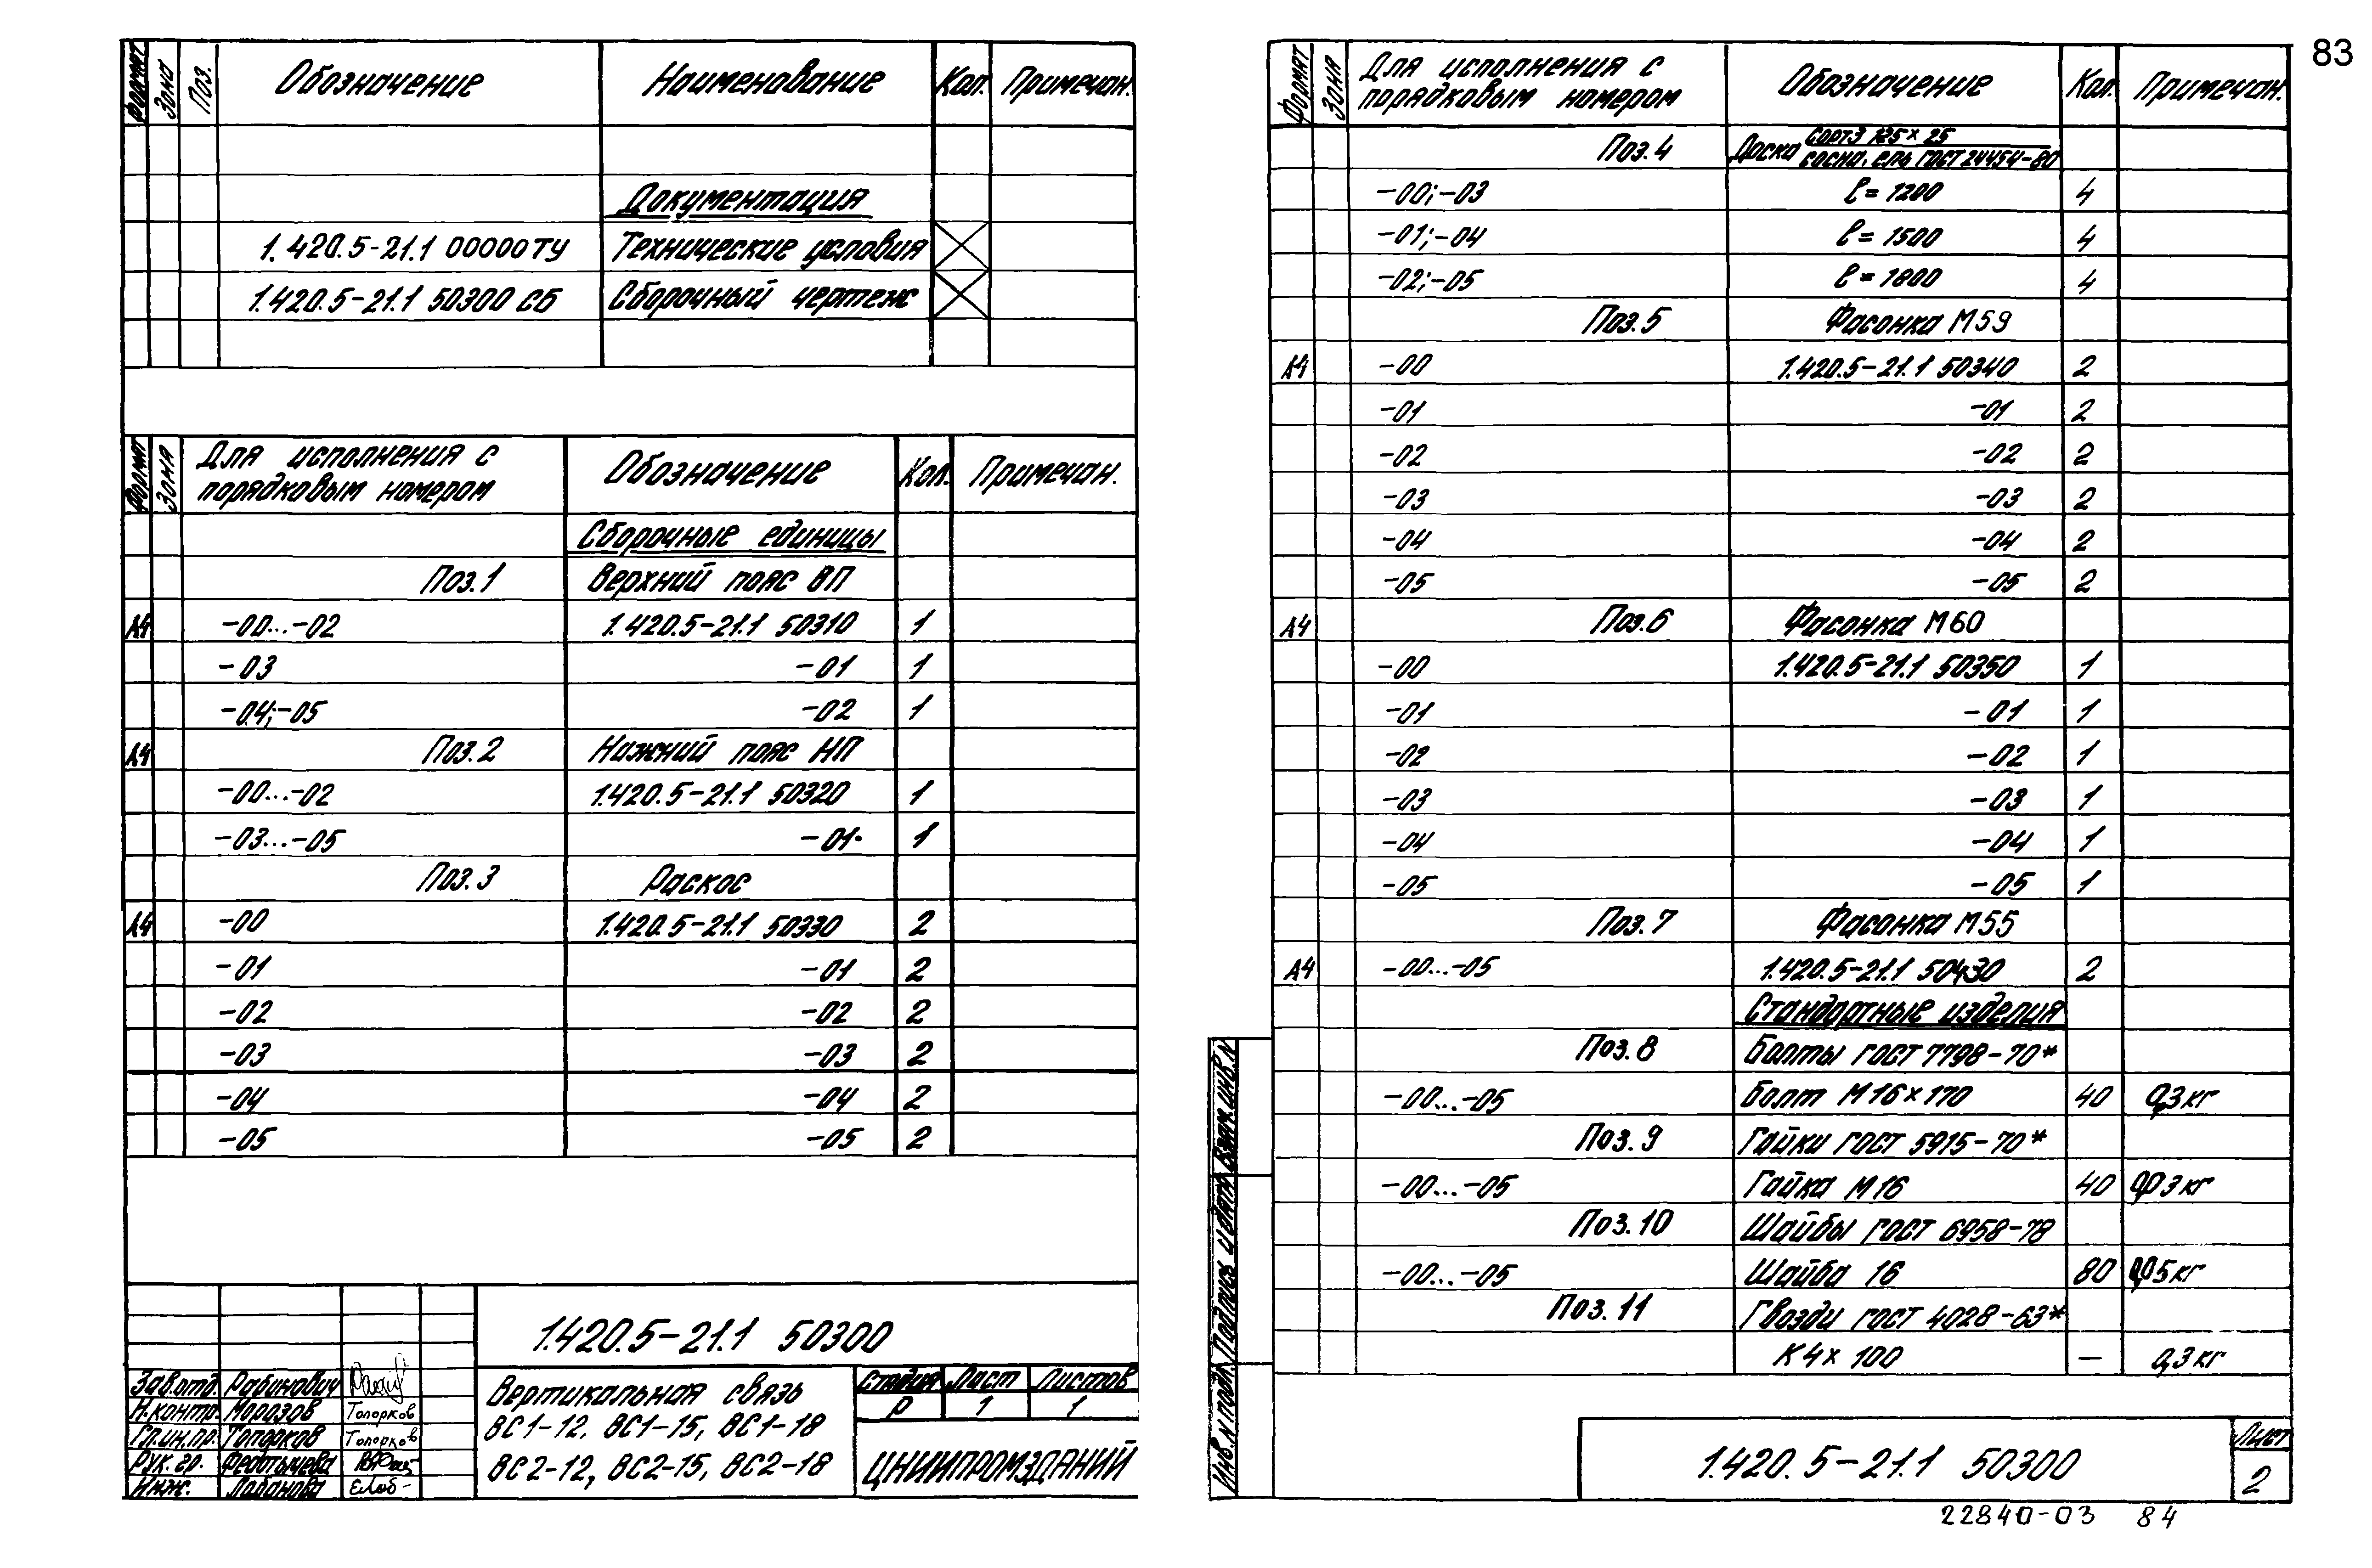 83
Формат Зона Поз. Обозначение Наименование Кол. Примечан.
Документация
1.420.5-21.1 00000 ТУ Технические условия
1.420.5-21.1 50300 СБ Сборочный чертеж
Формат Зона Для исполнения с порядковым номером Обозначение Кол. Примечан.
Сборочные единицы
Поз.1 Верхний пояс ВП
А4 -00...-02 1.420.5-21.1 50310 1
-03 -01 1
-04;-05 -02 1
А4 Поз.2 Нижний пояс НП
-00...-02 1.420.5-21.1 50320 1
-03...-05 -01 1
Поз.3 Раскос
А4 -00 1.420.5-21.1 50330 2
-01 -01 2
-02 -02 2
-03 -03 2
-04 -04 2
-05 -05 2
1.420.5-21.1 50300
Зав.отд. Рабинович
Н.контр. Морозов Топорков
Гл.инж.пр. Топорков Топорков
Рук.гр.
Инж. Лобанова
Вертикальная связь
ВС1-12, ВС1-15, ВС1-18
ВС2-12, ВС2-15, ВС2-18
Стадия Лист Листов
Р 1 1
ЦНИИПРОМЗДАНИЙ
Формат Зона Для исполнения с порядковым номером Обозначение Кол. Примечан.
Поз.4 Доска сорт3 125×25
сосна, ель ГОСТ 24454-80
-00;-03 ℓ=1200 4
-01;-04 ℓ=1500 4
-02;-05 ℓ=1800 4
Поз.5 Фасонка М59
А4 -00 1.420.5-21.1 50340 2
-01 -01 2
-02 -02 2
-03 -03 2
-04 -04 2
-05 -05 2
А4 Поз.6 Фасонка М60
-00 1.420.5-21.1 50350 1
-01 -01 1
-02 -02 1
-03 -03 1
-04 -04 1
-05 -05 1
Поз.7 Фасонка М55
А4 -00...-05 1.420.5-21.1 50430 2
Стандартные изделия
Поз.8 Болты ГОСТ 7798-70*
-00...-05 Болт М16×170 40 0,3кг
Поз.9 Гайки ГОСТ 5915-70*
-00...-05 Гайка М16 40 0,03кг
Поз.10 Шайбы ГОСТ 6958-78
-00...-05 Шайба 16 80 0,05кг
Поз.11 Гвозди ГОСТ 4028-63*
К4×100 — 0,3кг
Инв.N подл. Подпись и дата Взам.инв.N
1.420.5-21.1 50300
Лист
2
22840-03 84